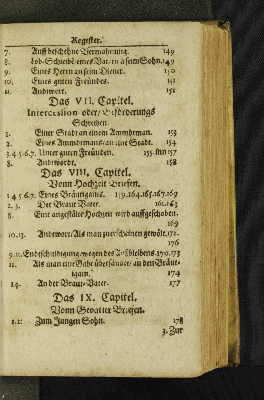 Register.
7. Auff beschehne Vermahnung. 149
8. Lob-Schreibē/eines Vatern à seim Sohn. 149
9. Eines Herrn an seim Diener. 150
10. Eines guten Freundes. 151
11. Andtwort. 151
Das VII. Capitel.
Intercession- oder/ Beförderungs
Schreiben.
1. Einer Stadt an einem Amptman. 153
2. Eines Amptmans/an eine Stadt. 154
3.4.5.6.7. Unter guten Freünden. 155.biß 157
8. Andtwordt. 158
Das VIII. Capitel.
Vonn Hochzeit Briefen.
1 4.5.6.7. Eines Bräutigams. 159.164.165.167.169
2. 3. Der Braut Vater. 161.163
8. Eine angestälte Hochzeit wird auffgeschoben.
169
10.13. Andtwort/Als man zuerscheinen gewölt. 171.
176
9.11. Endtschuldigung/wegen des Außbleibens. 170.173
12. Als man eine Gabe übersändet/an den Bräut-
igam. 174
14. An der Braut-Vater. 177
Das IX. Capitel.
Vonn Gevatter Briefen.
1.2: Zum Jungen Sohn. 178
3. Zur